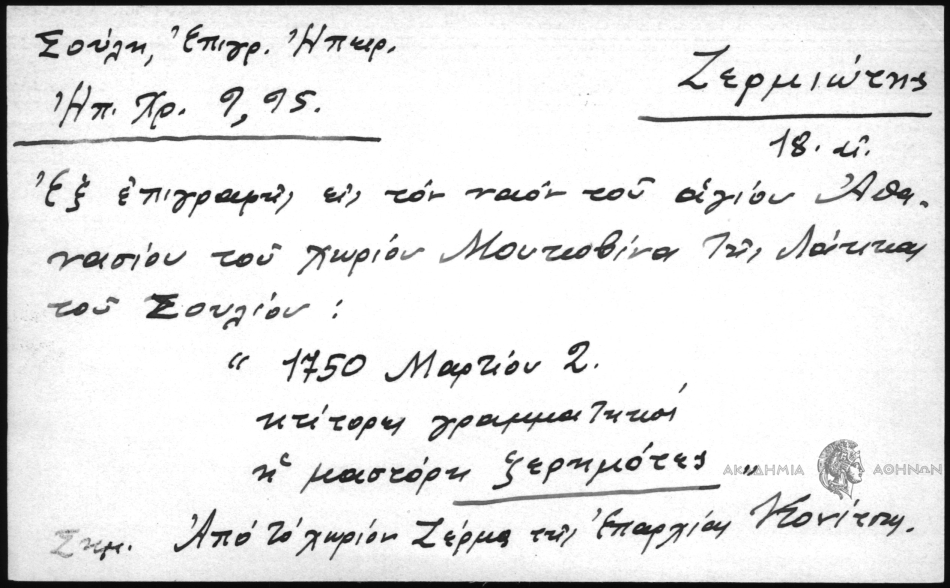 Σούλη, Ἐπιγρ. Ἠπειρ.
Ἠπ. Χρ. 9, 95.
Ζερμιώτης
18. αἰ.
Ἐξ ἐπιγραφῆς εἰς τόν ναόν τοῦ ἁγίου Ἀθα-
νασίου τοῦ χωρίου Μουτσοβίνα τῆς Λάκκας
τοῦ Σουλίου :
" 1750 Μαρτίου 2.
κτίτορες γραμματηκοί
κ̀ μαστόρη ξερημότες "
ΑΚΑΔΗΜΙΑ ΑΘΗΝΩΝ
Σημ. Ἀπό τό χωρίον Ζέρμα τῆς Ἐπαρχίας Κονίτσης.